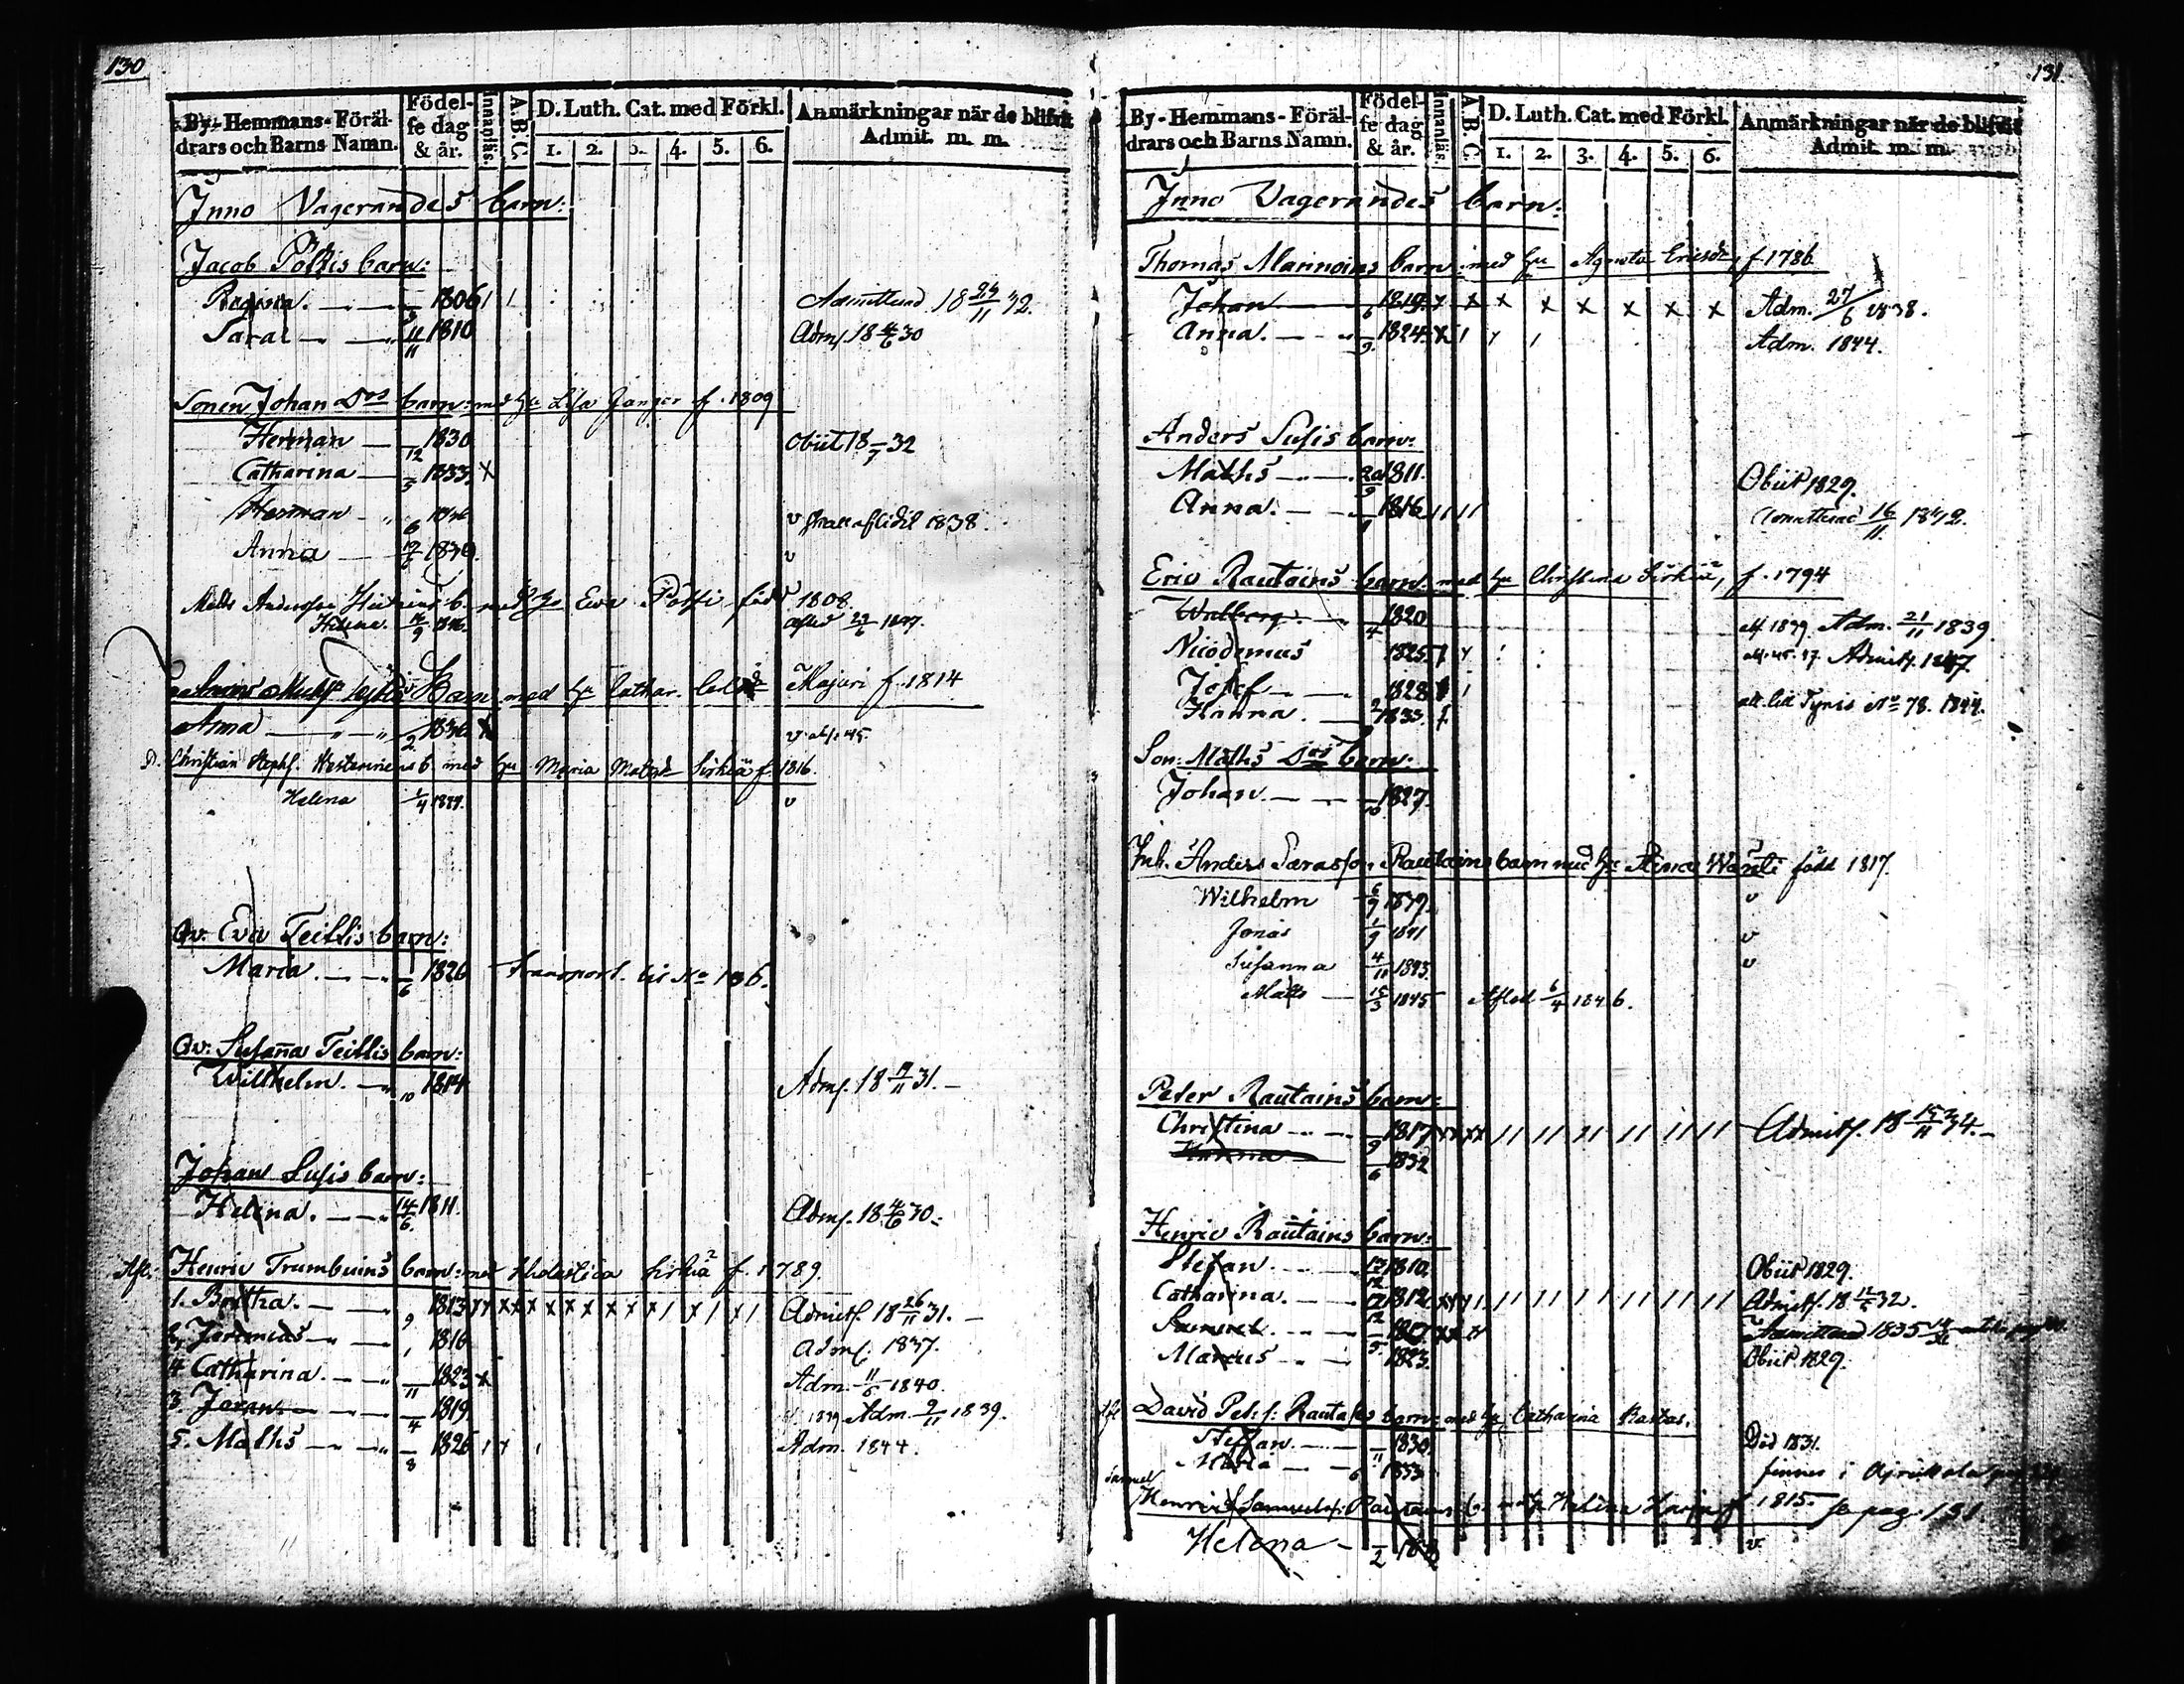 130
By- Hemmans- Föräl-
drars och Barns Namn.
Födel-
se dag
& år.
Innanläs.
A.B.C.
D. Luth. Cat. med Förkl.
1. 2. 3. 4. 5. 6.
Anmärkningar när de blifvit
Admit. m. m.
Inno Vagerandes barn:
Jacob Pottis barn:
Regina. 1806
Admitterad 18 24/11 32.
Sara 11/11 1810 Adms. 18 4/6 30
Sonen Johan Dos barn: med hu Lisa Ganger f. 1809
Herman /12 1830 Obiit 18 /7 32
Catharina /5 1833. x
Herman /6 v 1838.
Anna 1839. v
Matts Andersson b. med hu Eva Potti född 1808.
Helena. 14/9 1846. 1847.
Barn med hu Cathar. Majuri f. 1814
Anna /2 v
Christian Steph. b. med hu Maria Matsdr Sirkiä f. 1816.
Helena 1/4 1844. v
Qv: Eva Teittis barn:
Maria. /6 1826 transport. till No 136.
Qv: Susanna Teittis barn:
Willhelm. /10 1814 Adms. 18 /11 31.
Johan Susis barn:
Helena. 14/6 1811. Adms. 18 4/6 30.
Afl. Henric Trumbuins barn: med Sirkiä f. 1789.
1. Britha. /9 1813 Admitt. 18 26/11 31.
2. Jeremias /1 1816 Adms. 1837.
4. Catharina. /11 1823 x Adm. 11/6 1840.
3. Joran /4 1819. Adm. 9/11 1839.
5. Maths /8 1826 Adm. 1844.
131
By- Hemmans- Föräl-
drars och Barns Namn.
Födel-
se dag
& år.
Innanläs.
A.B.C.
D. Luth. Cat. med Förkl.
1. 2. 3. 4. 5. 6.
Anmärkningar när de blifvit
Admit. m. m.
Inno Vagerandes barn:
Thomas Mannoins barn: med hu Agneta Ericsdr, f 1786
Johan /6 1819. x x x x x x x x Adm. 27/6 1838.
Anna. /9 1824. Adm. 1844.
Anders Susis barn:
Maths 20/9 1811. Obiit 1829.
Anna. /1 1816 Admitterad 16/11 1832.
Eric Rautains barn: med hu Christina Sirkiä, f. 1794
Walborg. /4 1820 Adm. 21/11 1839.
Nicodemus 1825. Admitt. 1847
Josef 1828
Hanna. 1833. att. till Tyris No 78. 1844.
Son: Maths Dos barn:
Johan /10 1827.
Inh. Anders Sarasson Rautains barn med hu Stina Wänti född 1817.
Wilhelm 6/9 1839. v
Jonas 1/9 1841 v
Susanna 4/11 1843. v
Matts 15/3 1845 Afled 6/4 1846.
Peter Rautains barn:
Christina /9 1817 Admitt. 18 15/11 34.
Hanna /6 1832
Henric Rautains barn:
Stefan. 1810. Obiit 1829.
Catharina. 1812 Admitt. 18 32.
Samuel. /5 1817 Admitterad 1835
Marcus 1823. Obiit 1829.
Afl David Pet: s: Rautains barn: med hu Catharina Rastas.
Steffan. /11 1830. Död 1831.
Maria /6 1833 finnes i
Samuel
Henric Samuelss: Rautains b. med hu Helena f 1815. se pag. 131.
Helena /2 v